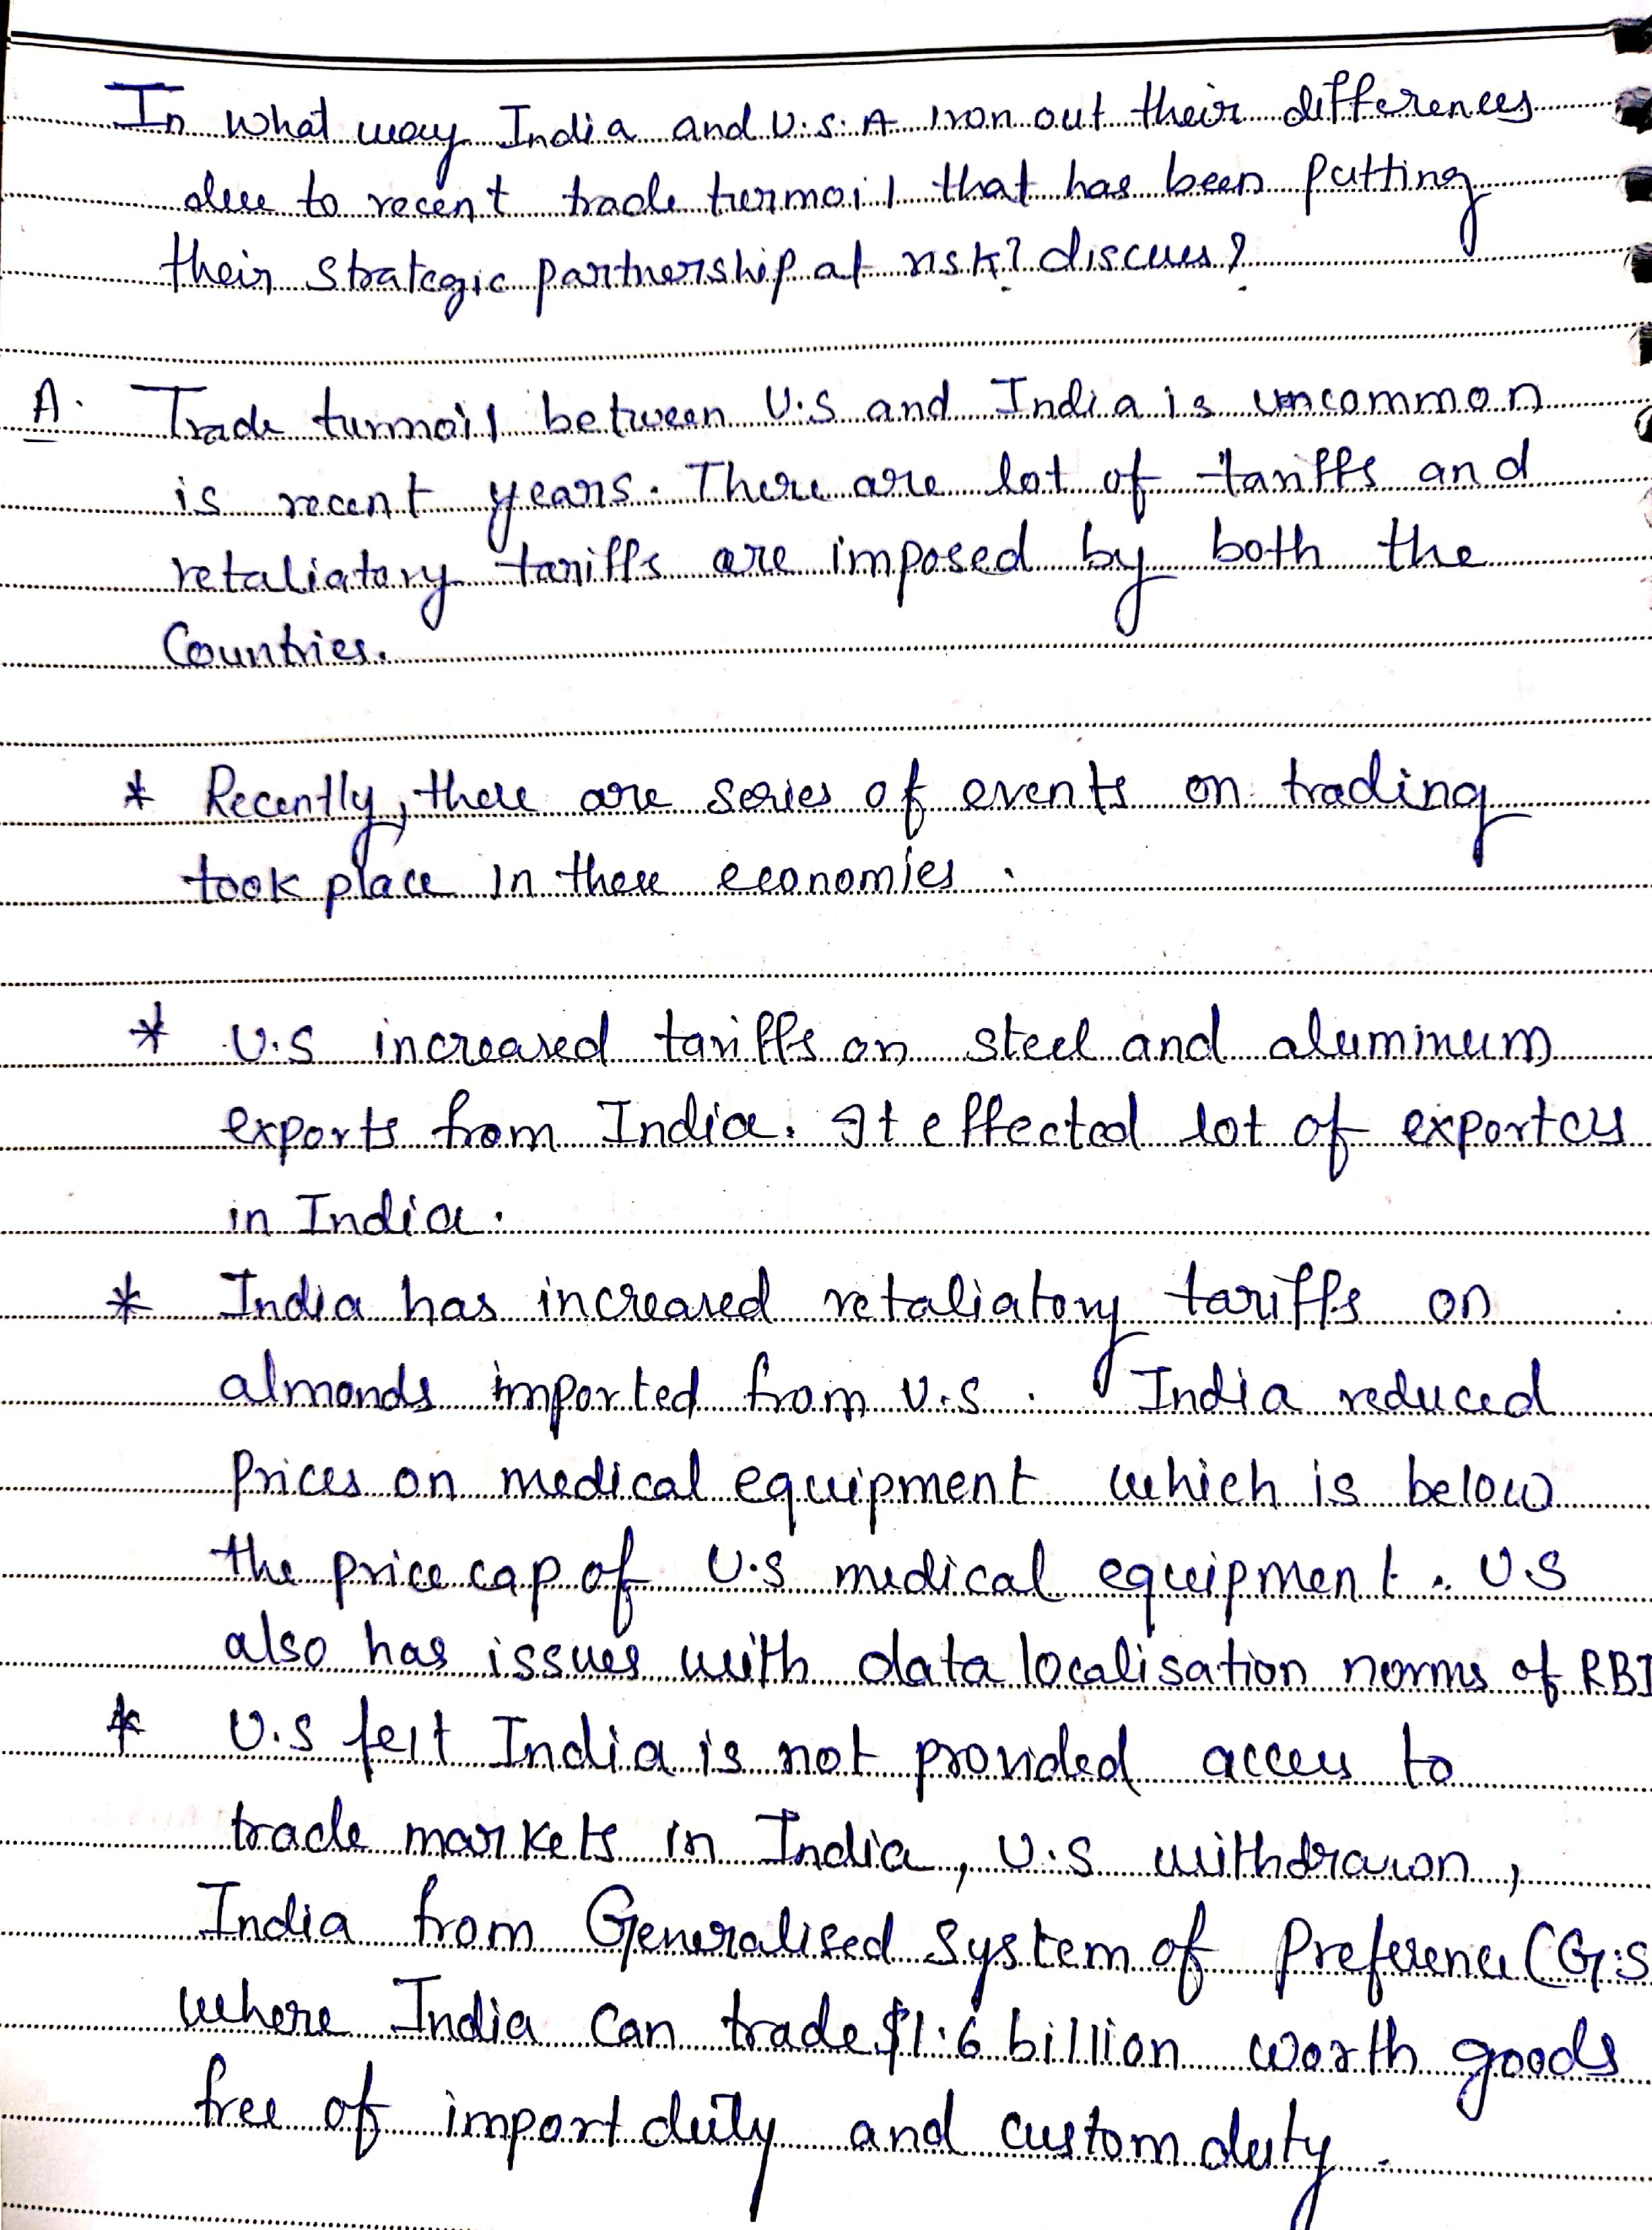 In what way India and U.S.A Iron out their differences
due to recent trade turmoil that has been putting
their strategic partnership at risk? discuss?
A. Trade turmoil between U.S and India is uncommon
is recent years. There are lot of tariffs and
retaliatory tariffs are imposed by both the
Countries.
* Recently, there are series of events on trading
took place in these economies.
* U.S increased tariffs on steel and aluminum
exports from India. It effected lot of exporters
in India.
* India has increased retaliatory tariffs on
almonds imported from U.S. India reduced
prices on medical equipment which is below
the price cap of U.S medical equipment. US
also has issues with data localisation norms of RBI
* U.S felt India is not provided access to
trade markets in India, U.S withdrawn,
India from Generalised System of Preference (G.S
where India can trade $1.6 billion worth goods
free of import duty and custom duty.